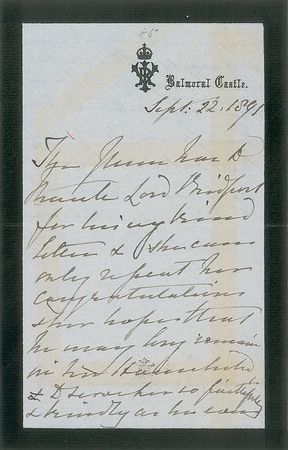 Balmoral Castle.
Sept: 22. 1891
The Queen has to
thank Lord Bridport
for his very kind
letter & she can
only repeat her
congratulations
& her hopes that
he may long remain
in her Household
& to serve her so faithfully
& kindly as he